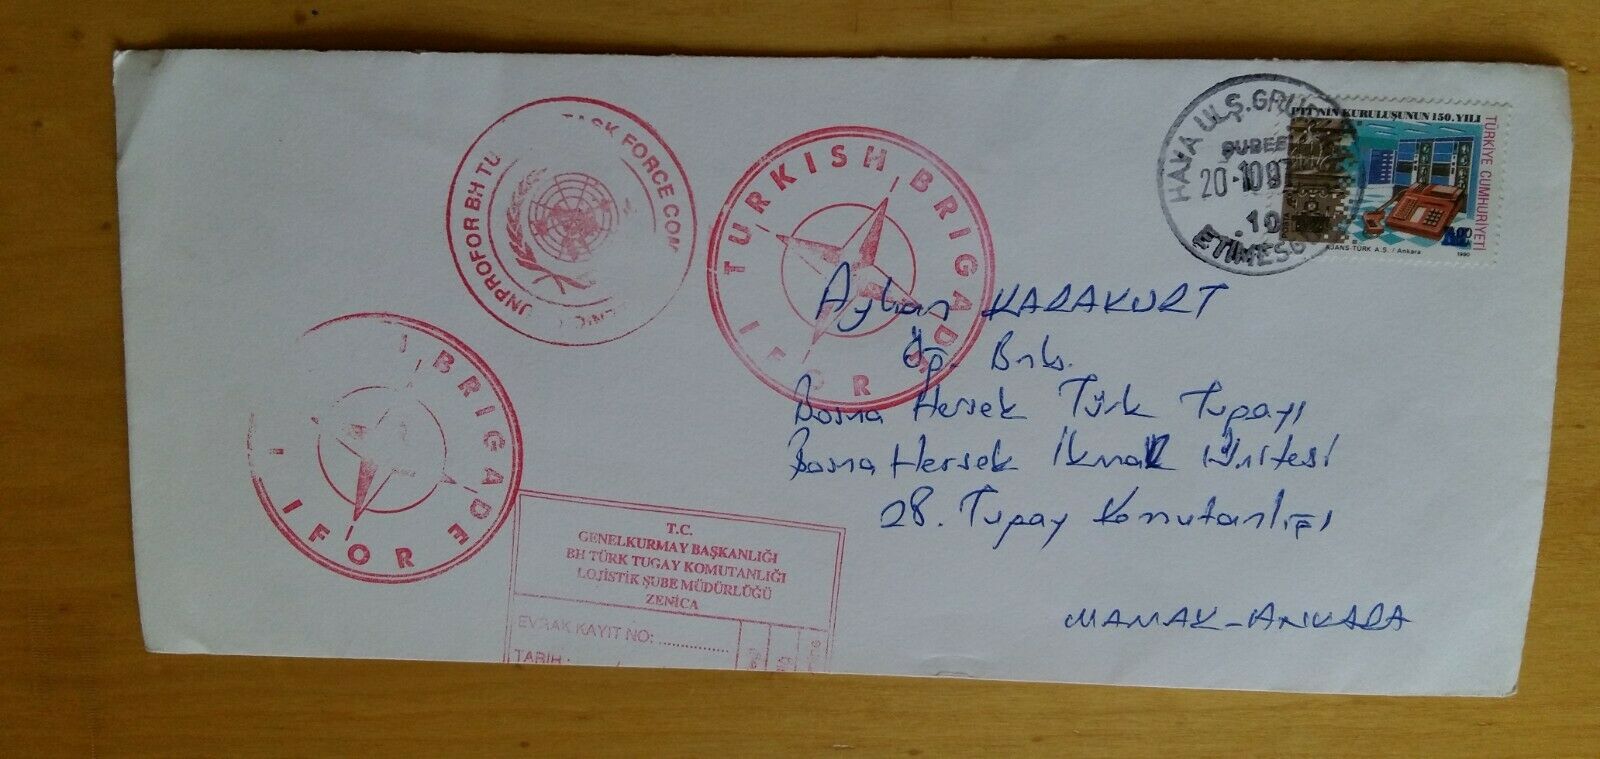 UNPROFOR BH TU TASK FORCE COM
TURKISH BRIGADE
IFOR
BRIGADE
IFOR
HAVA ULŞ. GRUP
ŞUBESİ
20-10 97
.10
ETİMESG
PTT'NİN KURULUŞUNUN 150. YILI
TÜRKİYE CUMHURİYETİ
AJANS-TÜRK A.S. / Ankara
1990
Ayhan KARAKURT
Öp. Bnb.
Bosna Hersek Türk Tugayı
Bosna Hersek İkmal Ünitesi
28. Tugay Komutanlığı
MAMAK-ANKARA
T.C.
GENELKURMAY BAŞKANLIĞI
BH TÜRK TUGAY KOMUTANLIĞI
LOJİSTİK ŞUBE MÜDÜRLÜĞÜ
ZENİCA
EVRAK KAYIT NO: ..................
TARİH :